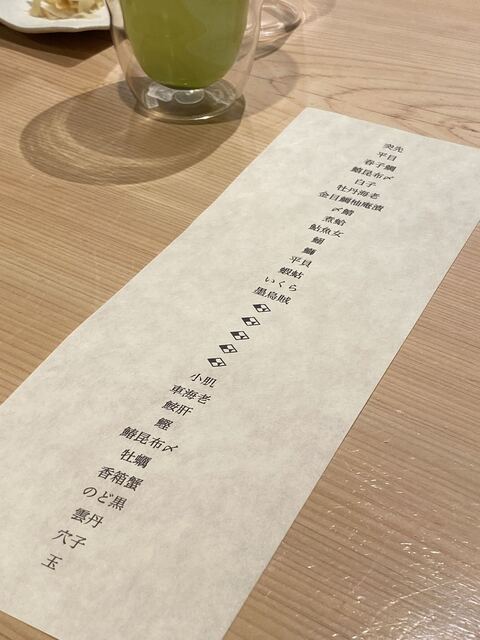 突先
平目
春子鯛
鰆昆布〆
白子
牡丹海老
金目鯛柚庵漬
〆鯖
煮蛤
鮎魚女
鰯
鰤
平貝
蝦蛄
いくら
墨烏賊
小肌
車海老
鮟肝
鰹
鰆昆布〆
牡蠣
香箱蟹
のど黒
雲丹
穴子
玉